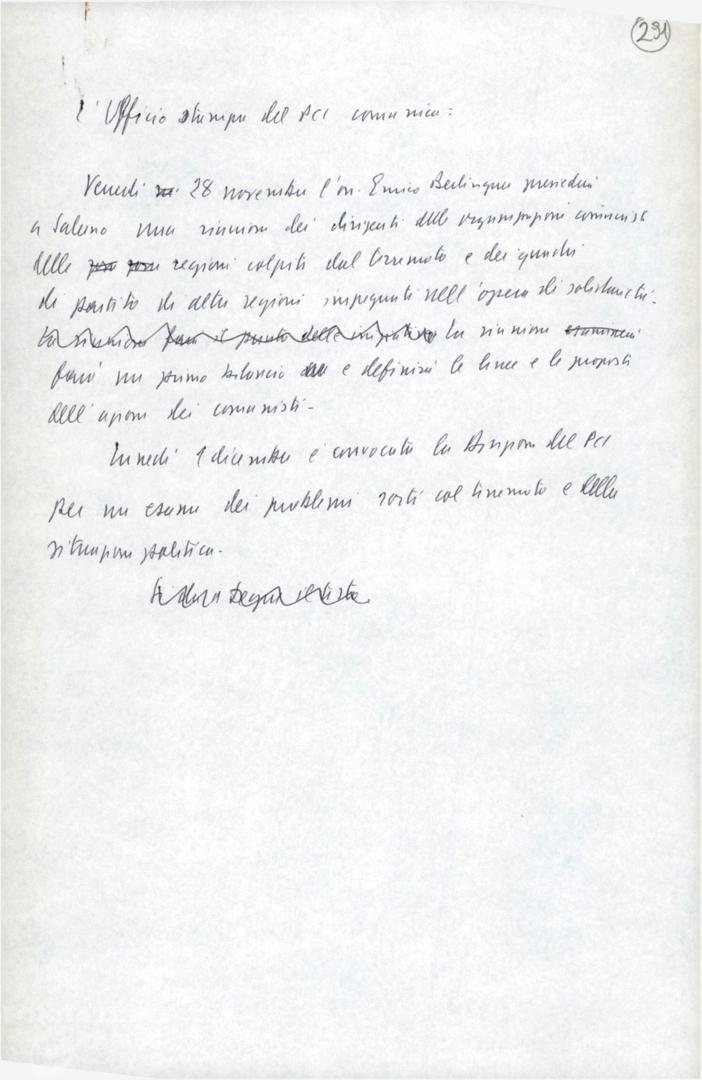 291
L'Ufficio stampa del PCI comunica:
Venerdì 28 novembre l'on. Enrico Berlinguer presiederà
a Salerno una riunione dei dirigenti delle organizzazioni comuniste
delle regioni colpite dal terremoto e dei quadri
di partito di altre regioni impegnati nell'opera di solidarietà.
La riunione farà il punto della La riunione esaminerà
farà un primo bilancio e definirà le linee e le proposte
dell'azione dei comunisti.
Lunedì 1 dicembre è convocata la Direzione del PCI
per un esame dei problemi sorti col terremoto e della
situazione politica.